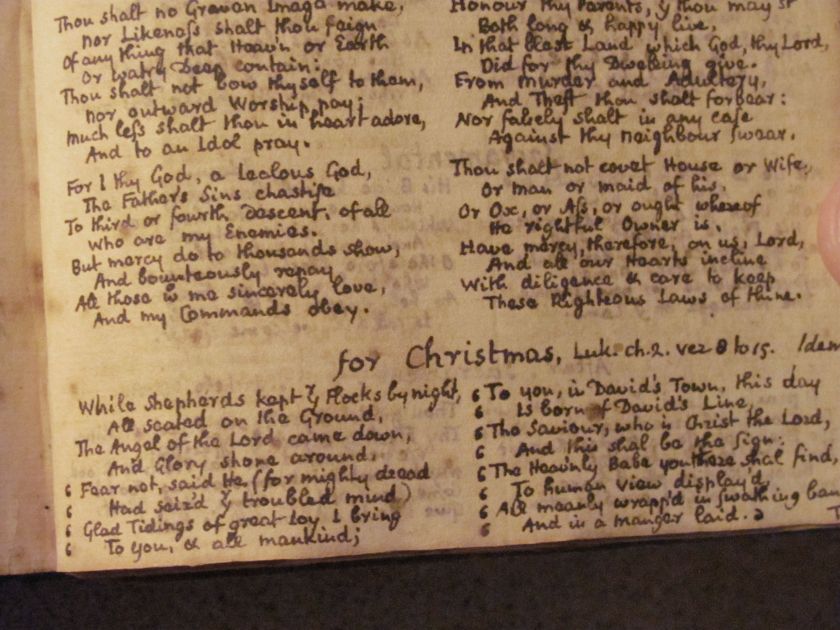 Thou shalt no Graven Image make,
Nor Likeness shalt thou feign
Of any thing that Heav'n or Earth
Or watry Deep contain:
Thou shalt not bow thyself to them,
Nor outward Worship pay;
Much less shalt thou in heart adore,
And to an Idol pray.
For I thy God, a Iealous God,
The Fathers Sins chastise
To third or fourth Descent, of all
Who are my Enemies.
But mercy do to thousands show,
And bounteously repay
All those who me sincerely love,
And my Commands obey.
Honour thy Parents, yt thou may'st
Both long & happy live,
In that blest Land which God, thy Lord,
Did for thy Dwelling give.
From Murder and Adultery,
And Theft thou shalt forbear:
Nor falsely shalt in any case
Against thy Neighbour swear.
Thou shalt not covet House or Wife,
Or man or maid of his,
Or Ox, or Ass, or ought whereof
He rightful Owner is.
Have mercy, therefore, on us, Lord,
And all our Hearts incline
With diligence & care to keep
These Righteous Laws of thine.
for Christmas, Luk. ch. 2. vez 8 to 15. Idem
While Shepherds kept yr Flocks by night,
All seated on the Ground,
The Angel of the Lord came down,
And Glory shone around.
6 Fear not, said He, (for mighty dread
6 Had seiz'd yr troubled mind)
6 Glad Tidings of great Ioy I bring
6 To you, & all mankind;
6 To you, in David's Town, this day
6 Is born of David's Line,
6 The Saviour, who is Christ the Lord,
6 And this shal be the sign:
6 The Heavenly Babe you there shal find,
6 To human view display'd,
6 All meanly wrapp'd in swathing ban
6 And in a manger laid. 2